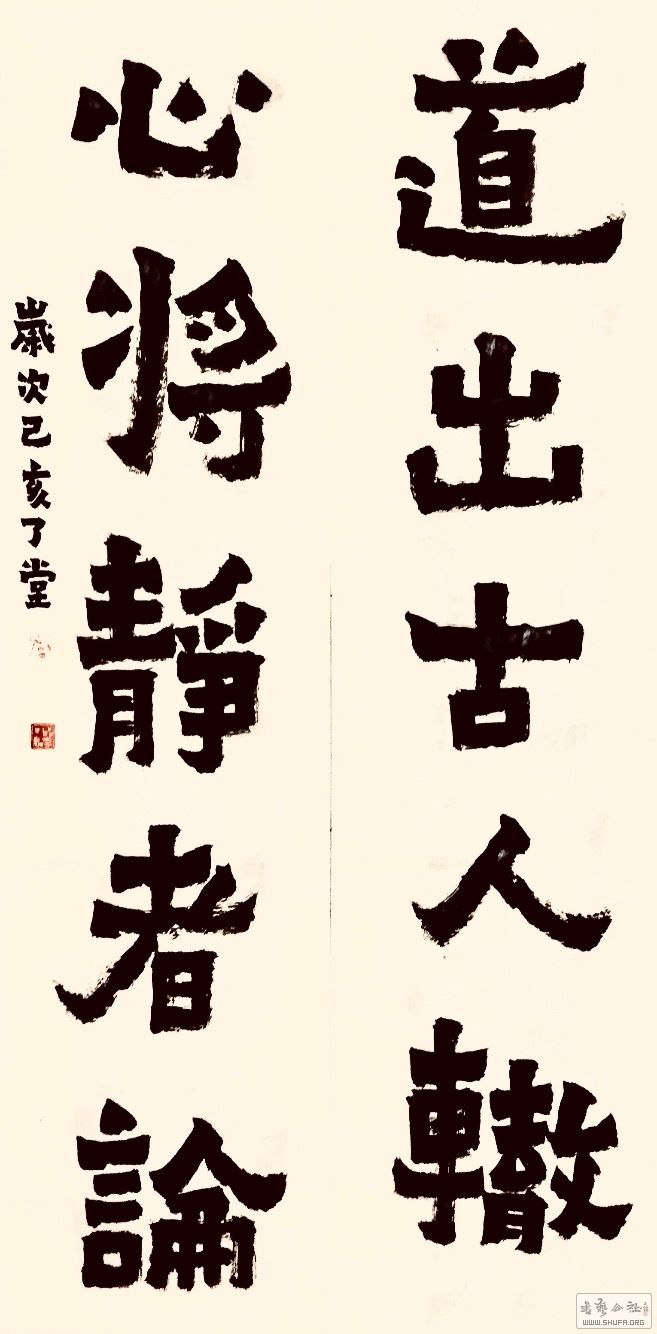 道出古人轍
心將靜者論
歲次己亥了堂
書藝公社
WWW.SHUFA.ORG